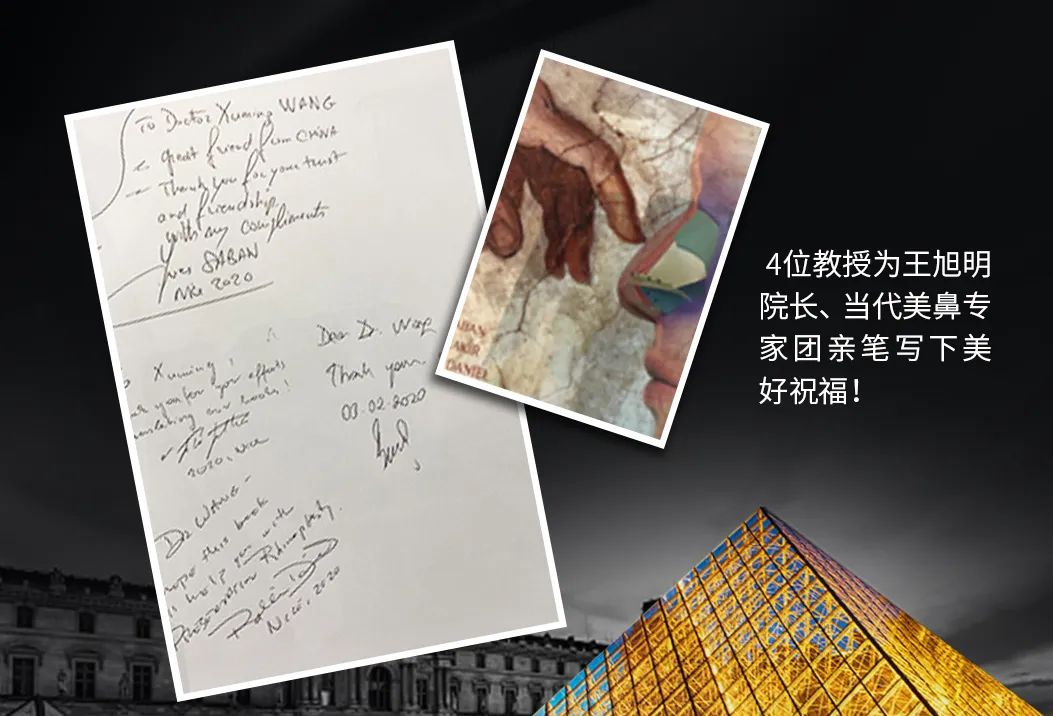 To Doctor Xuming WANG
great friend from CHINA
Thank you for your trust
and friendship
with my compliments
Yves SABAN
Nice 2020
Dear Dr. Wang
Thank you
03.02.2020
Xuming!
you for your efforts
translating our books!
2020, Nice
Dr WANG-
hope this book
help you with
PRESERVATION Rhinoplasty.
NICE, 2020
SABAN
ÇAKIR
DANIEL
4位教授为王旭明
院长、当代美鼻专
家团亲笔写下美
好祝福！